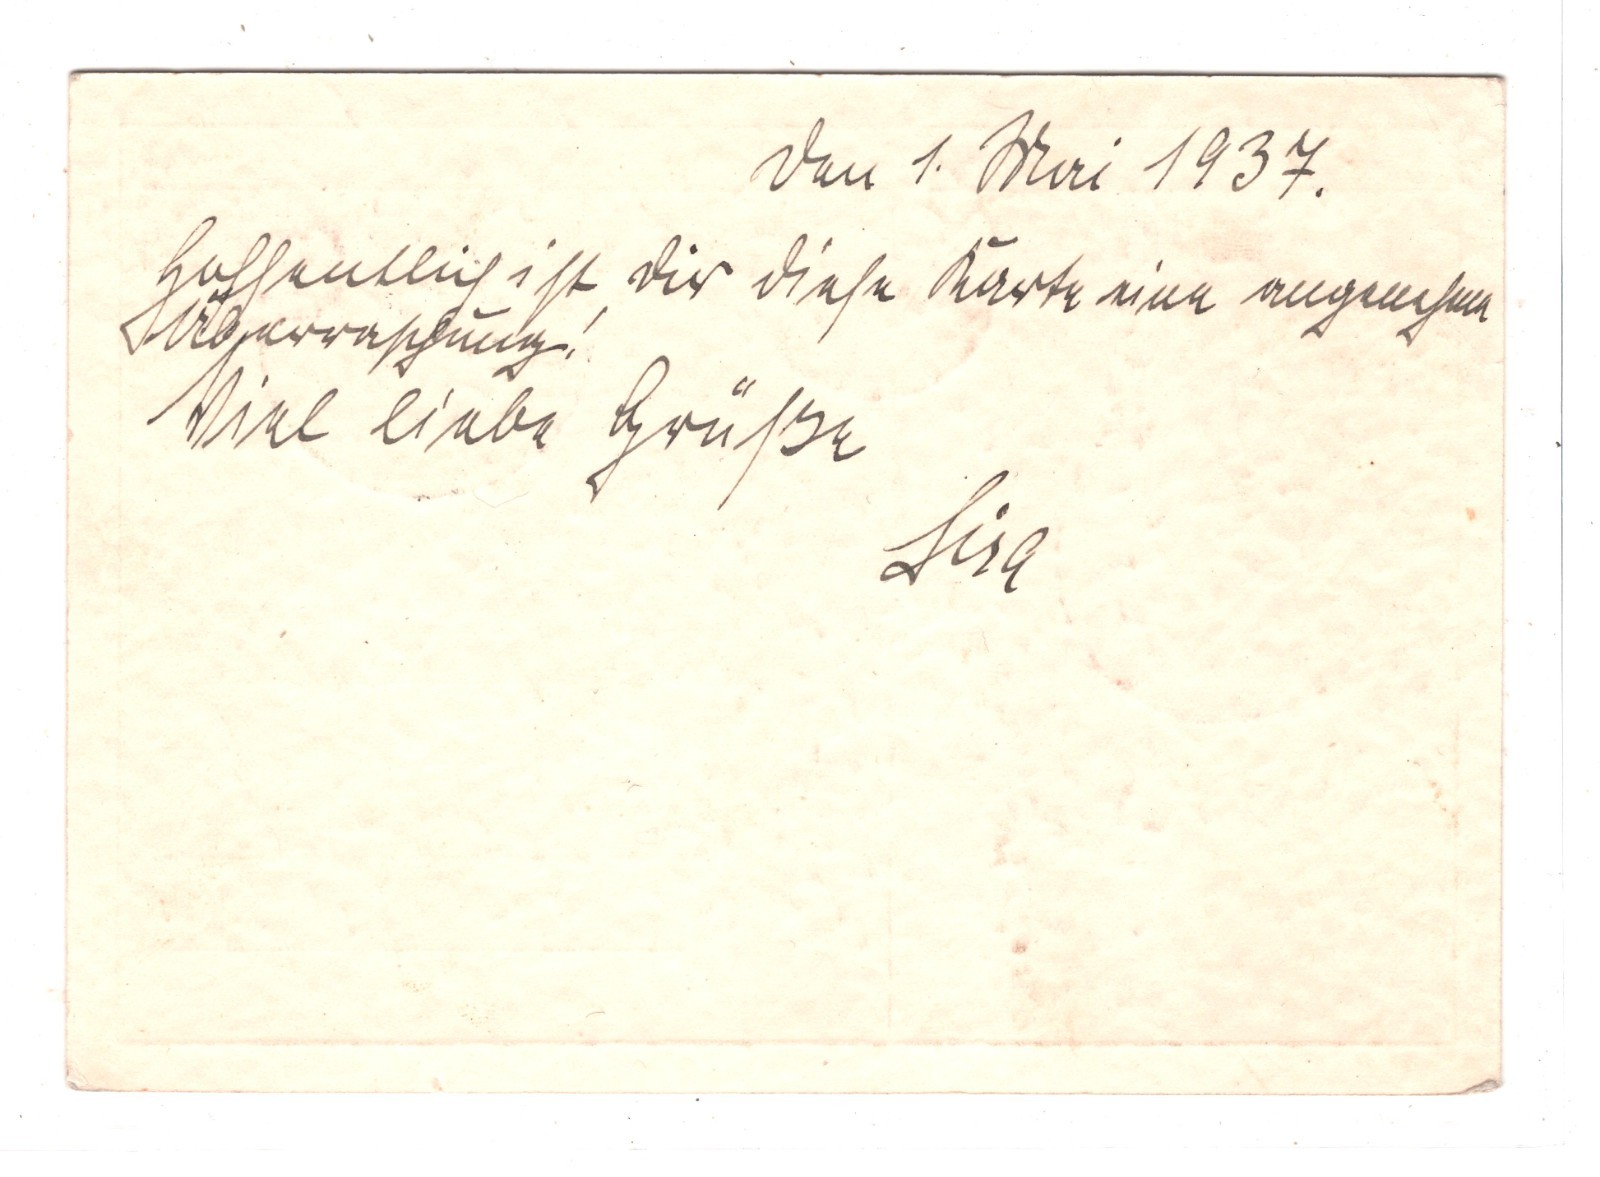 Den 1. Mai 1937.
Hoffentlich ist dir diese Karte eine angenehme
Überraschung!
Viel liebe Grüße